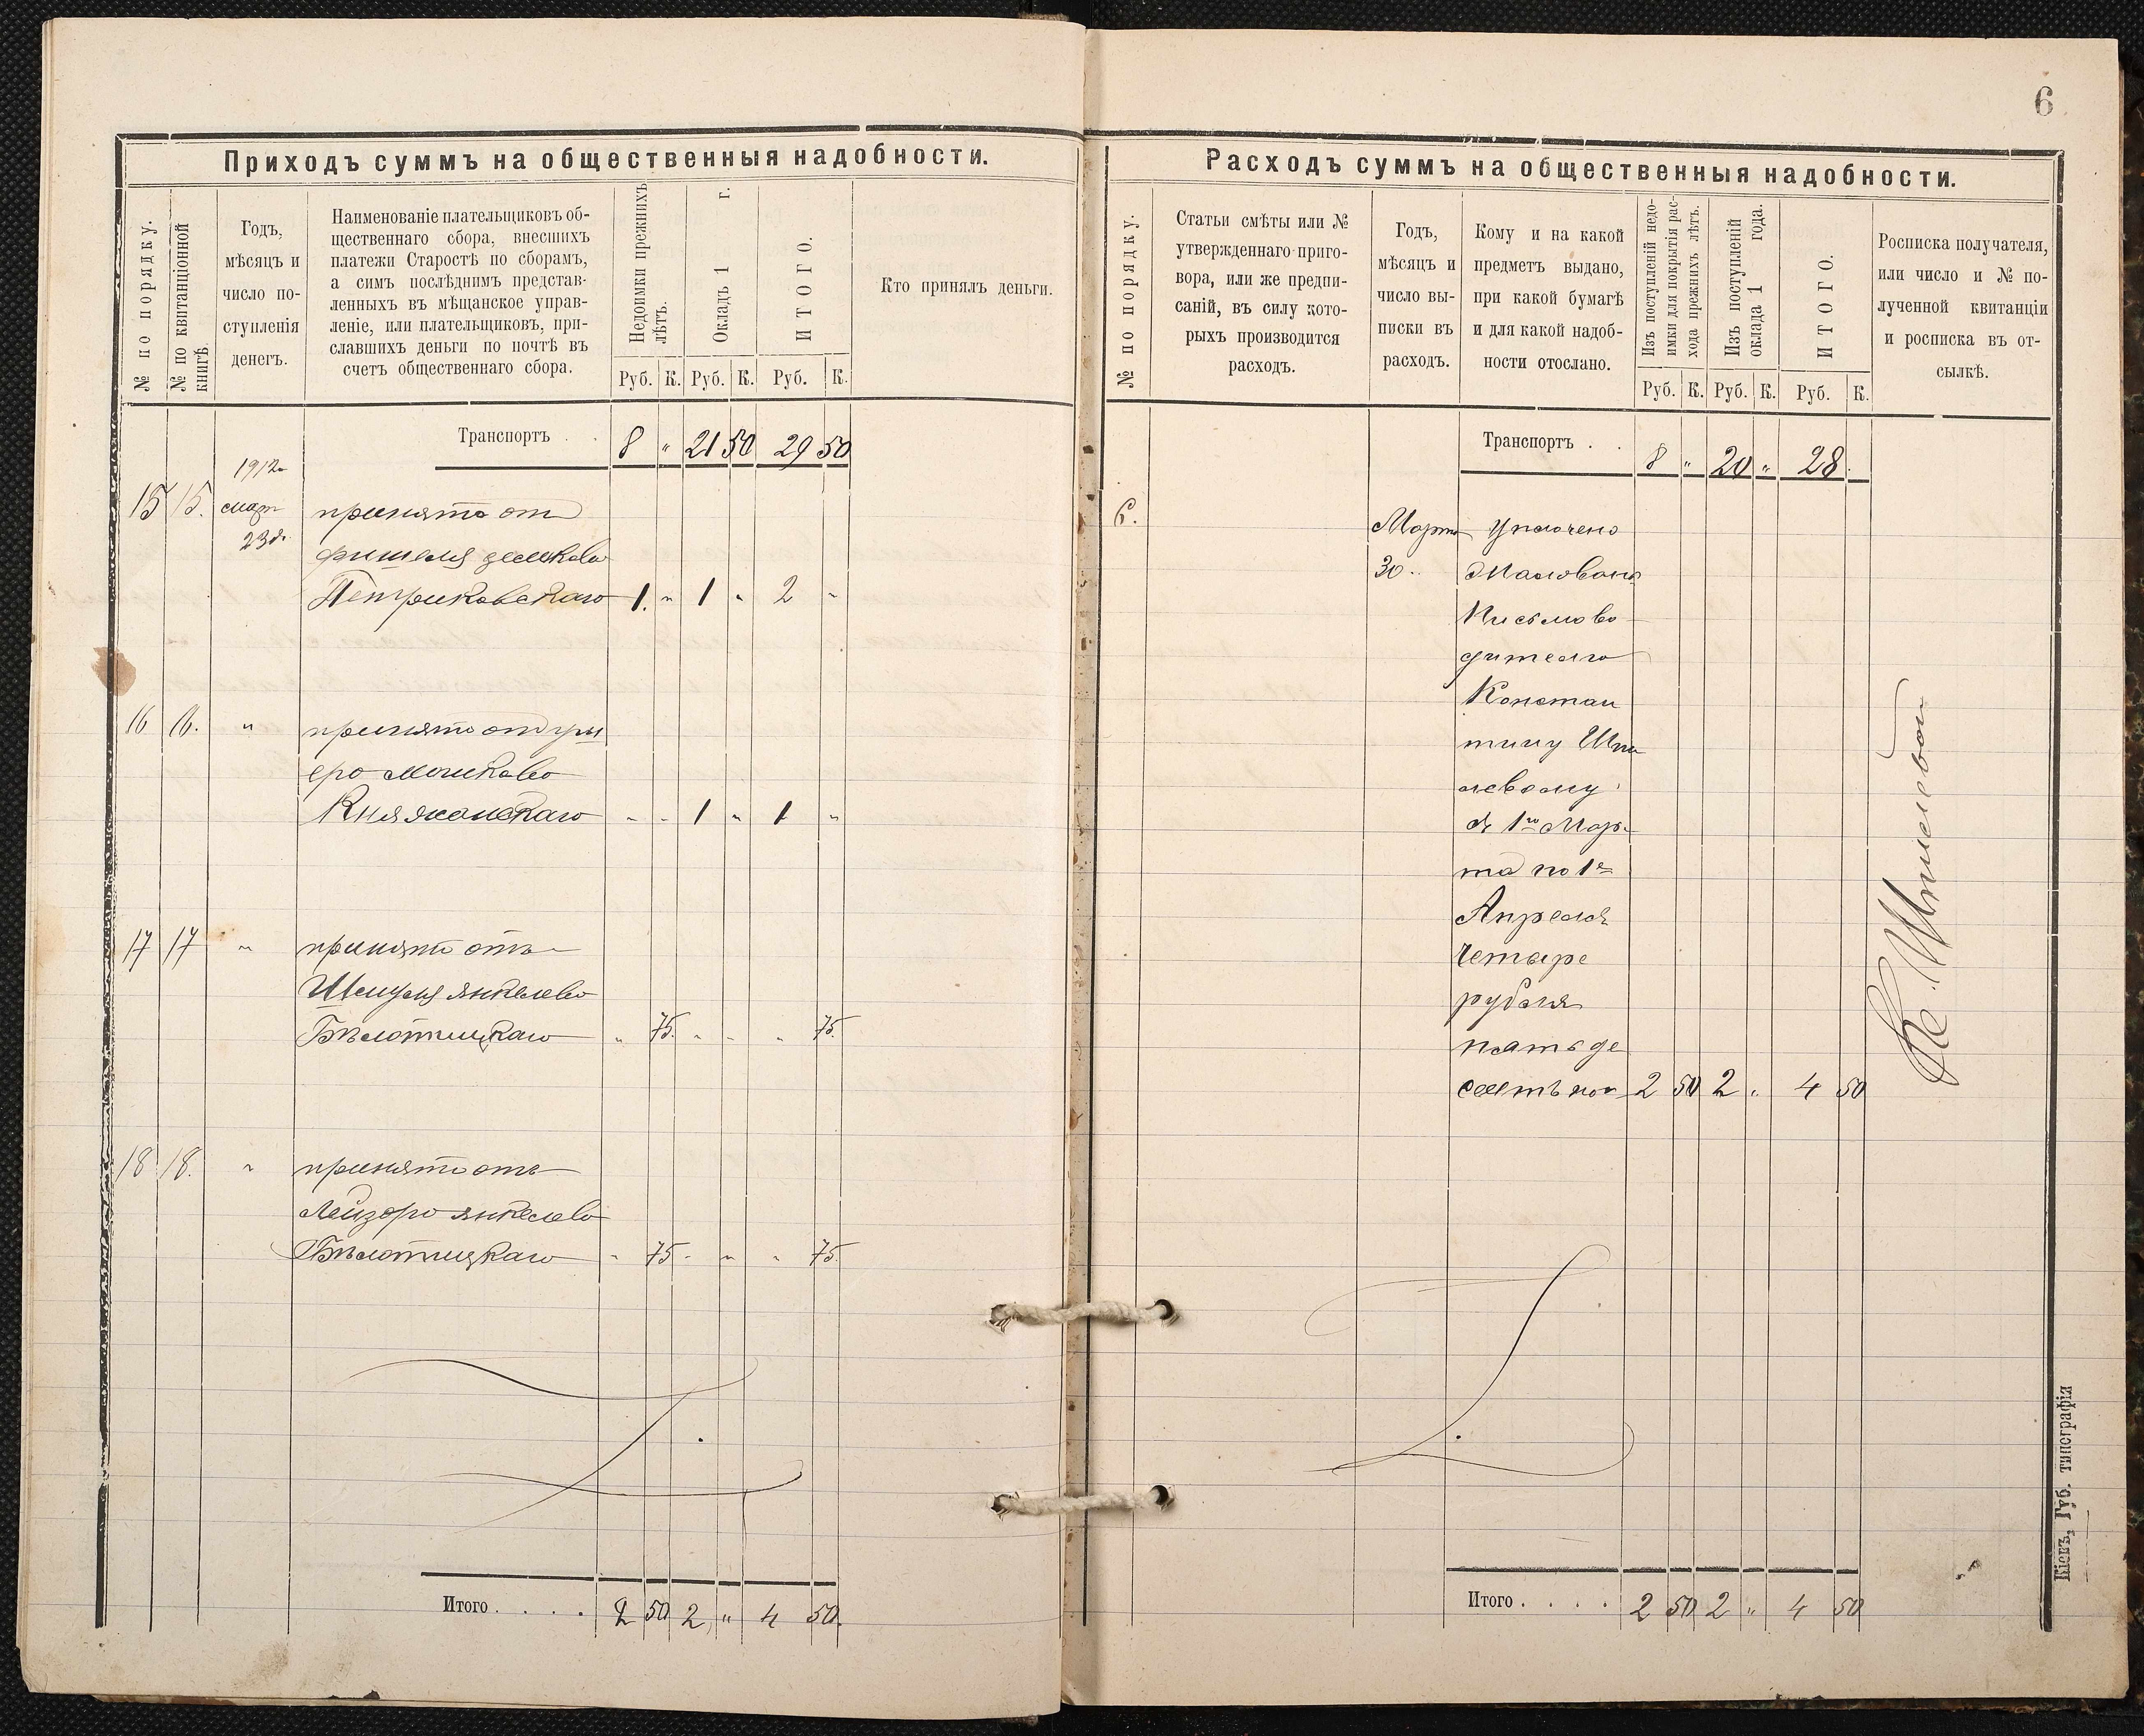 6
Приходъ суммъ на общественныя надобности.
№ по порядку.
№ по квитанціонной
книгѣ.
Годъ,
мѣсяцъ и
число по-
ступленія
денегъ.
Наименованіе плательщиковъ об-
щественнаго сбора, внесшихъ
платежи Старостѣ по сборамъ,
а симъ послѣднимъ представ-
ленныхъ въ мѣщанское управ-
леніе, или плательщиковъ, при-
славшихъ деньги по почтѣ въ
счетъ общественнаго сбора.
Недоимки прежнихъ
лѣтъ.
Окладъ 1 г.
ИТОГО.
Кто принялъ деньги.
Руб. К. Руб. К. Руб. К.
Транспортъ . . 8 " 21 50 29 50
1912
15 15. март принято от
23 д.
фишеля
Петриковскаго 1. " 1 " 2 "
16 16. " принято от
Мошково
Княжанскаго " " 1 " 1 "
17 17 " принято отъ
Шмуля Янкелево
Бѣлотицкаго " 75. " " " 75.
18 18. " принято отъ
Лейзора Янкелево
Бѣлотицкаго " 75 " " " 75.
Итого . . . . 2 50 2 " 4 50.
Расходъ суммъ на общественныя надобности.
№ по порядку.
Статьи смѣты или №
утвержденнаго приго-
вора, или же предпи-
саній, въ силу кото-
рыхъ производится
расходъ.
Годъ,
мѣсяцъ и
число вы-
писки въ
расходъ.
Кому и на какой
предметъ выдано,
при какой бумагѣ
и для какой надоб-
ности отослано.
Изъ поступленій недо-
имки для покрытія рас-
хода прежнихъ лѣтъ.
Изъ поступленій
оклада 1 года.
ИТОГО.
Росписка получателя,
или число и № по-
лученной квитанціи
и росписка въ от-
сылкѣ.
Руб. К. Руб. К. Руб. К.
Транспортъ . . 8 " 20 " 28 .
6. Марта Уплочено
30 Жалованя
Письмово
дителю
Констан
тину Шпи
левому
съ 1го Мар-
та по 1е
Апреля
Четыре
рубля
пятьде
сятъ коп 2 50 2 " 4 50
К. Шпилевой
Итого . . . . 2 50 2 " 4 50
Кіевъ, Губ. типографія